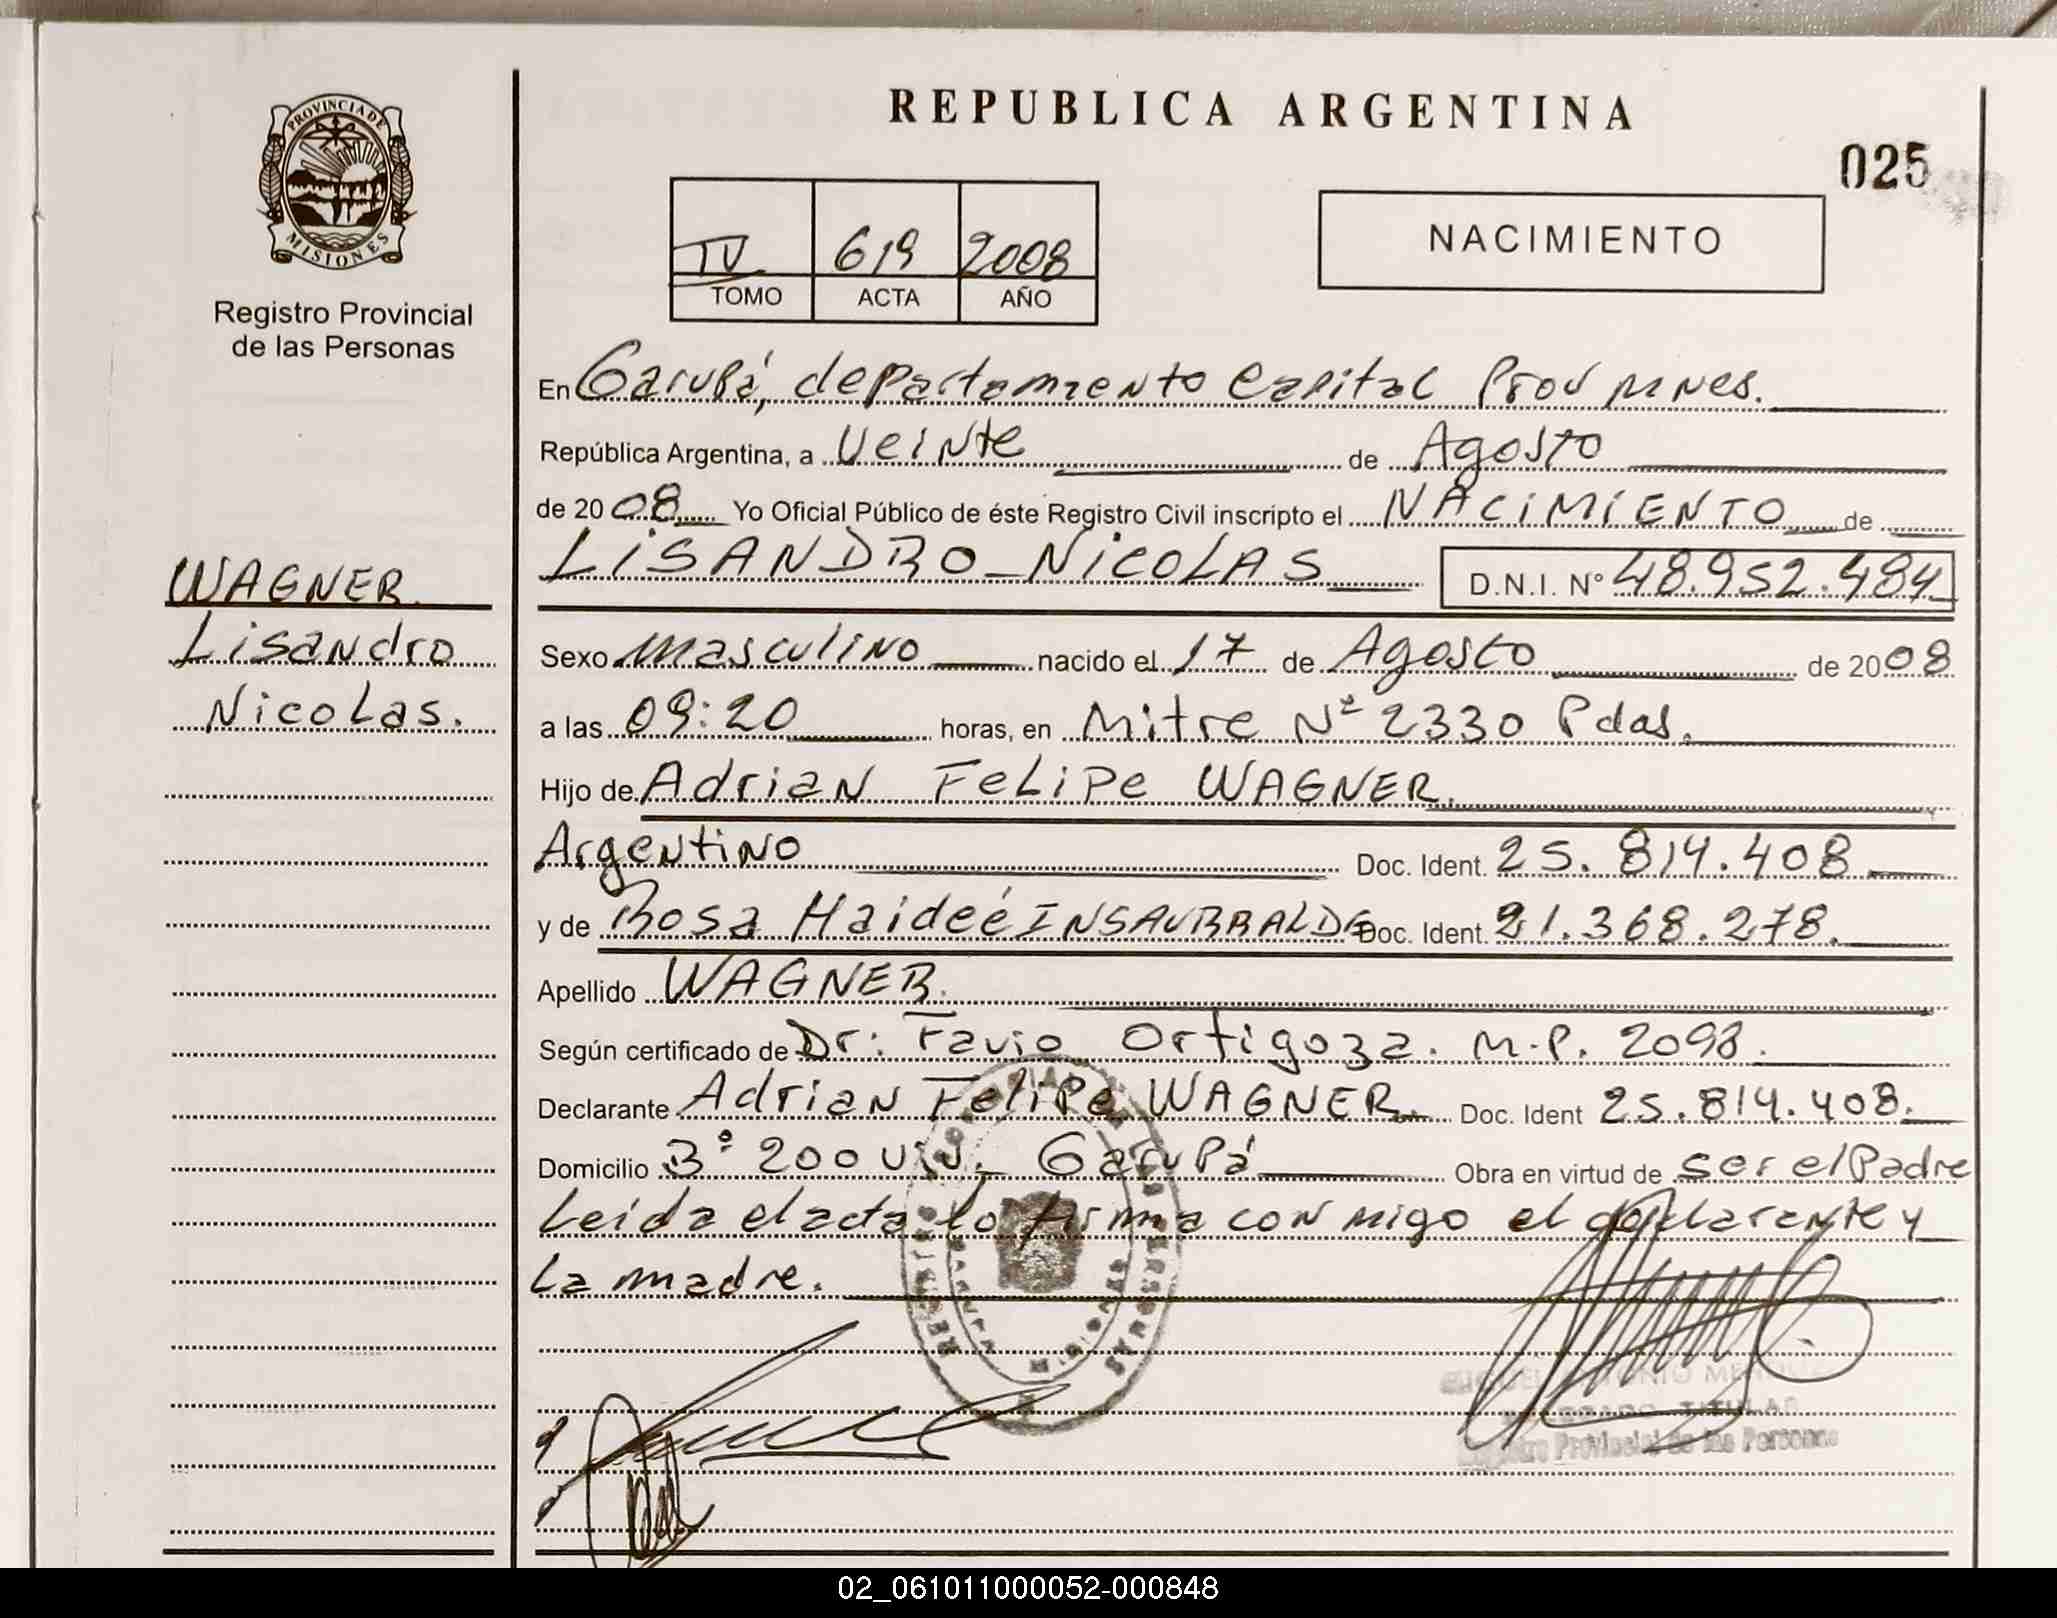 REPUBLICA ARGENTINA
025
PROVINCIA DE
MISIONES
Registro Provincial
de las Personas
IV 619 2008
TOMO ACTA AÑO
NACIMIENTO
En Garupá, departamento Capital Prov mnes.
República Argentina, a Veinte de Agosto
de 2008 Yo Oficial Público de éste Registro Civil inscripto el NACIMIENTO de
LISANDRO NICOLAS D.N.I. Nº 48.952.484
WAGNER
Lisandro
Nicolas.
Sexo masculino nacido el 17 de Agosto de 2008
a las 09:20 horas, en Mitre Nº 2330 Pdas.
Hijo de Adrian Felipe WAGNER.
Argentino Doc. Ident. 25.814.408
y de Rosa Haideé INSAURRALDE Doc. Ident. 21.368.278.
Apellido WAGNER.
Según certificado de Dr: Favio Ortigoza. M.P. 2098.
Declarante Adrian Felipe WAGNER. Doc. Ident 25.814.408.
Domicilio Bº 200 viv. Garupá Obra en virtud de ser el Padre
Leída el acta lo firma conmigo el declarante y
La madre.
TITULAR
Registro Provincial de las Personas
02_061011000052-000848